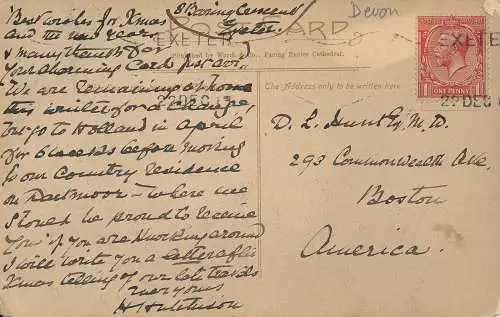 8 Baring Crescent
Exeter.
Devon
Best wishes for Xmas
and the new year
& many thanks for
your charming Card just arrd.
We are remaining at home
this winter for a change,
but go to Holland in April
for 6 weeks before moving
to our Country residence
on Dartmoor – where we
should be proud to receive
you if you are knocking around
I will write you a letter after
Xmas telling of our late travels
ever yours
H Hutchinson
CARD
EXETER
Published by Worth & Co., Facing Exeter Cathedral.
The Address only to be written here
EXETER
DEC
ONE PENNY
D. L. Hunt Esq. M.D.
293 Commonwealth Ave.
Boston
America.